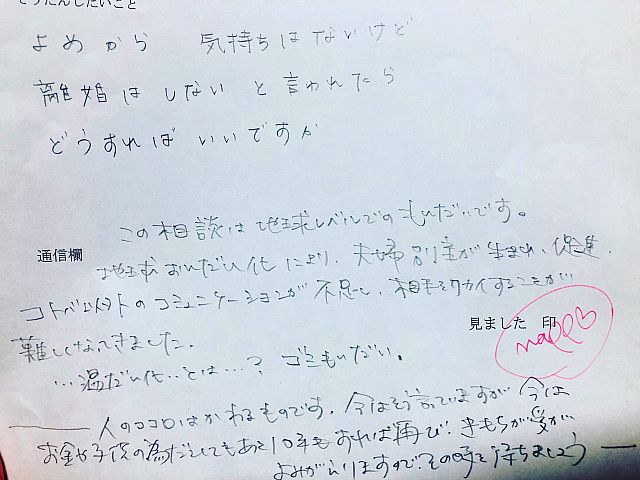 そうだんしたいこと
よめから 気持ちはないけど
離婚はしないと言われたら
どうすればいいですか
この相談は地球レベルでのもんだいです。
通信欄
地球おんだん化により、夫婦別産が生まれ、促進
コトバ以外のコミュニケーションが不足し、相手をリカイすることが
難しくなってきました。
見ました 印
…温だん化…とは…？ ゴミもんだい。
人のココロはかわるものです。今はそう言っていますが 今は
お金や子供の為だとしてもあと10年もすれば再び、きもちが
よみがえりますので、その時を待ちましょう